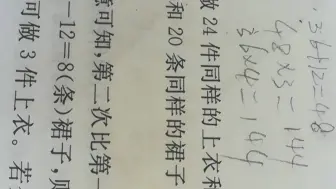 36+12=48
48×3=144
36×4=144
做 24 件同样的上衣和
和 20 条同样的裙子
意可知,第二次比第一
-12=8(条)裙子,
可做 3 件上衣。若